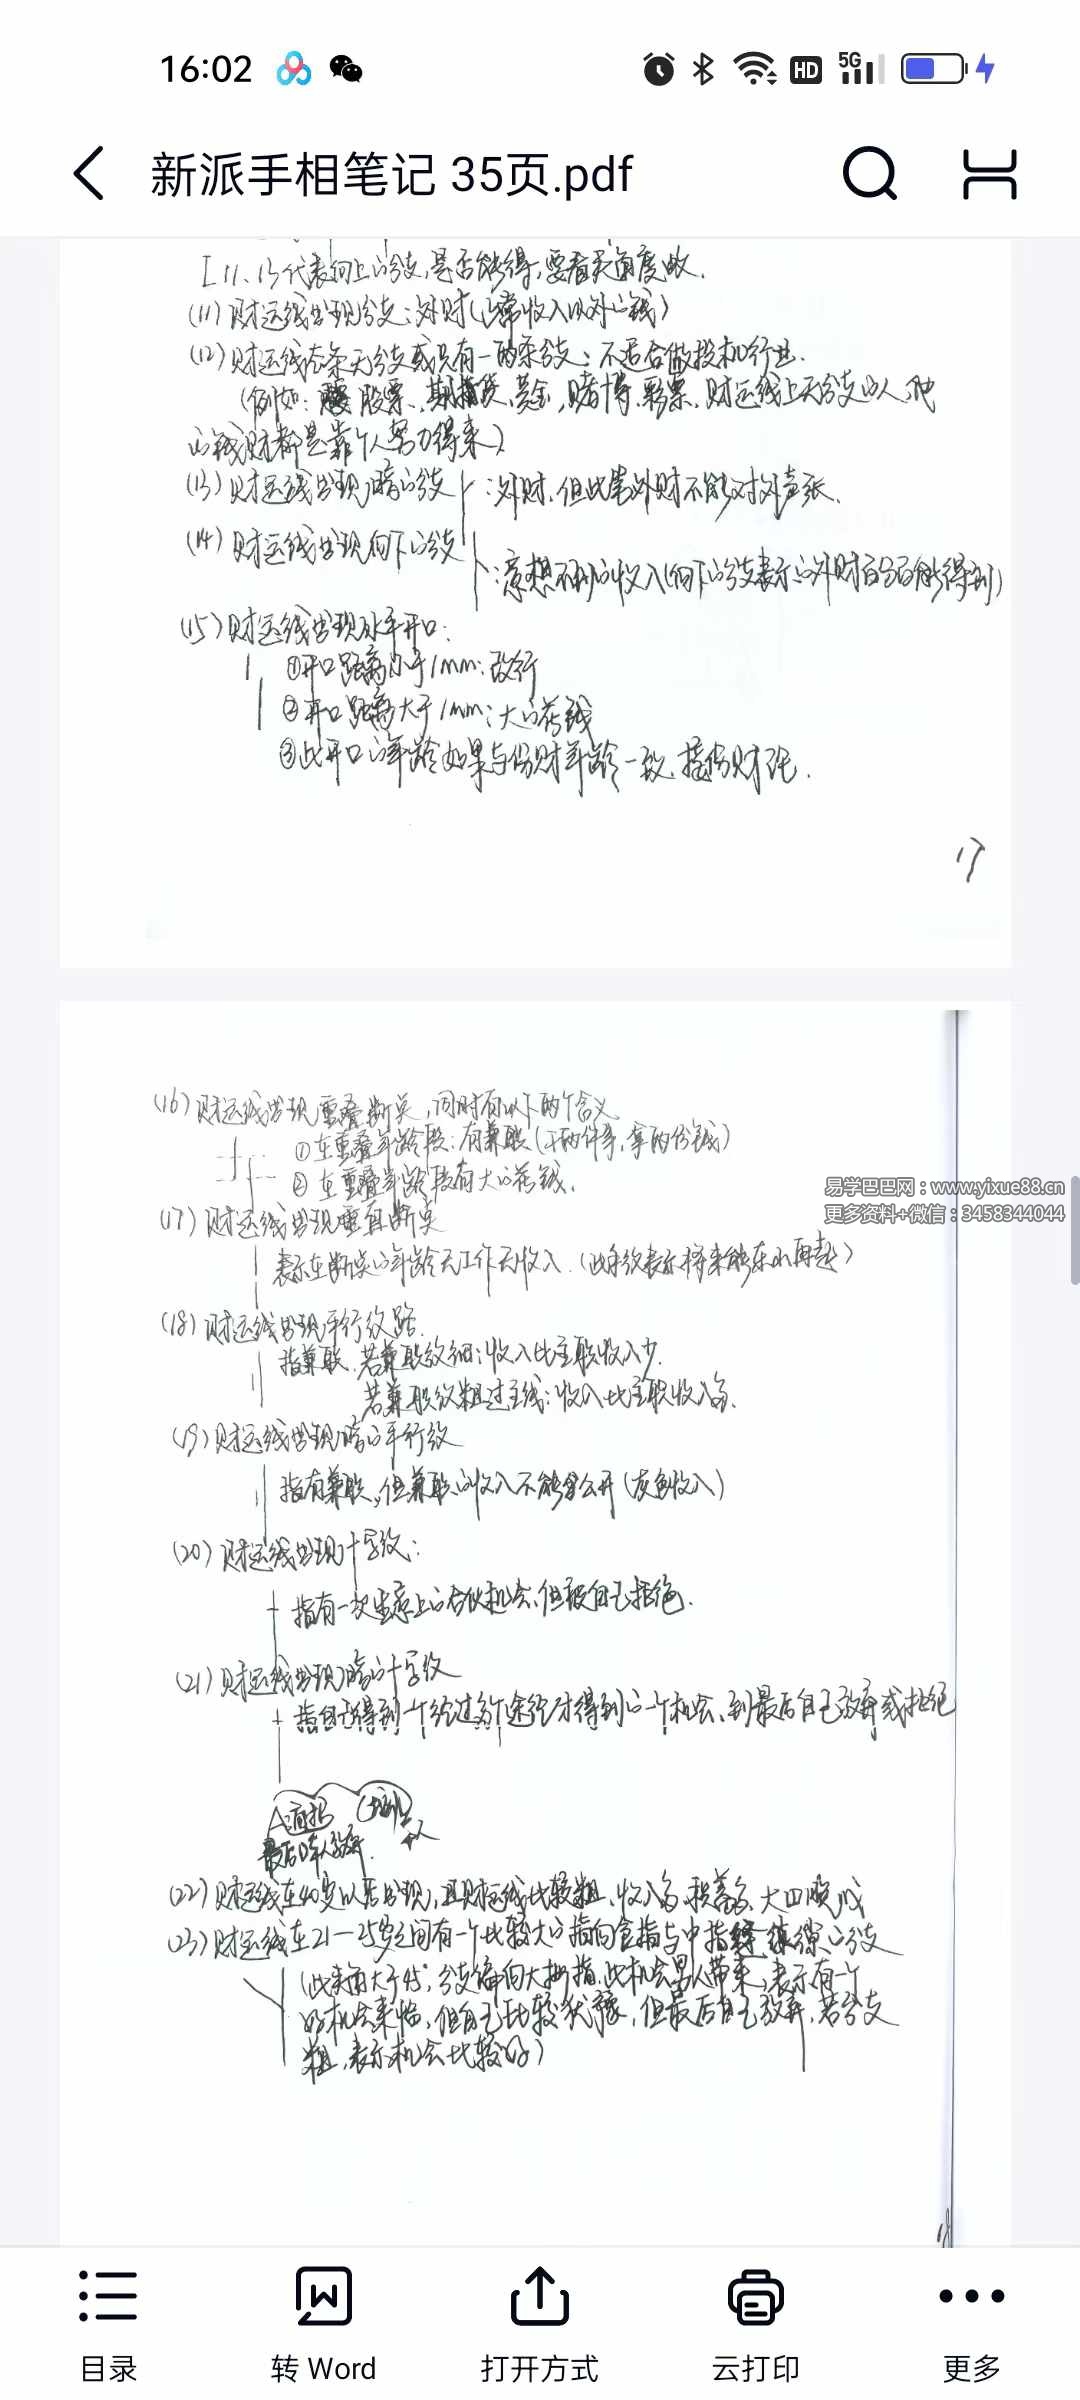 16:02
HD 5G
新派手相笔记 35页.pdf
[11、13代表向上的分支,是否能得,要看夹角度数.
(11)财运线出现分支:外财(正常收入以外的钱)
(12)财运线本条无分支或只有一两条分支:不适合做投机行业.
(例如: 股票、期货、黄金,赌博、彩票、财运线上无分支的人,他
的钱财都是靠个人努力得来)
(13)财运线出现暗的分支 :外财,但此笔外财不能对外声张.
(14)财运线出现向下的分支
:意想不到的收入(向下的分支表示的外财百分百能得到)
(15)财运线出现水平开口:
①开口距离小于1mm:改行
②开口距离大于1mm:大的花钱
③此开口的年龄如果与伤财年龄一致,指伤财
17
(16)财运线出现重叠断点,同时有以下两个含义
①在重叠年龄段:有兼职(干两件事,拿两份钱)
②在重叠年龄段有大的花钱.
易学巴巴网:www.yixue88.cn
更多资料+微信:3458344044
(17)财运线出现垂直断点
表示在断点的年龄无工作无收入.(此纹表示将来能东山再起)
(18)财运线出现平行纹路.
指兼职.若兼职纹细:收入比主职收入少.
若兼职纹粗过主线:收入比主职收入多.
(19)财运线出现暗的平行纹
指有兼职,但兼职的收入不能公开(灰色收入)
(20)财运线出现十字纹:
指有一次生意上的合伙机会,但被自己拒绝.
(21)财运线出现暗的十字纹
指自己得到一个经过多个途径才得到的一个机会、到最后自己放弃或拒绝
A
最后
(22)财运线在40岁以后出现,且财运线比较粗,收入多,积蓄多、大
(23)财运线在21—25岁之间有一个比较大的指向食指与中指 缝隙的分支
(此夹角大于45°,分支偏向大拇指,此机会男人带来,表示有一个
好机会来临,但自己比较犹豫,但最后自己放弃,若分支
粗,表示机会比较好)
18
目录
转 Word
打开方式
云打印
更多